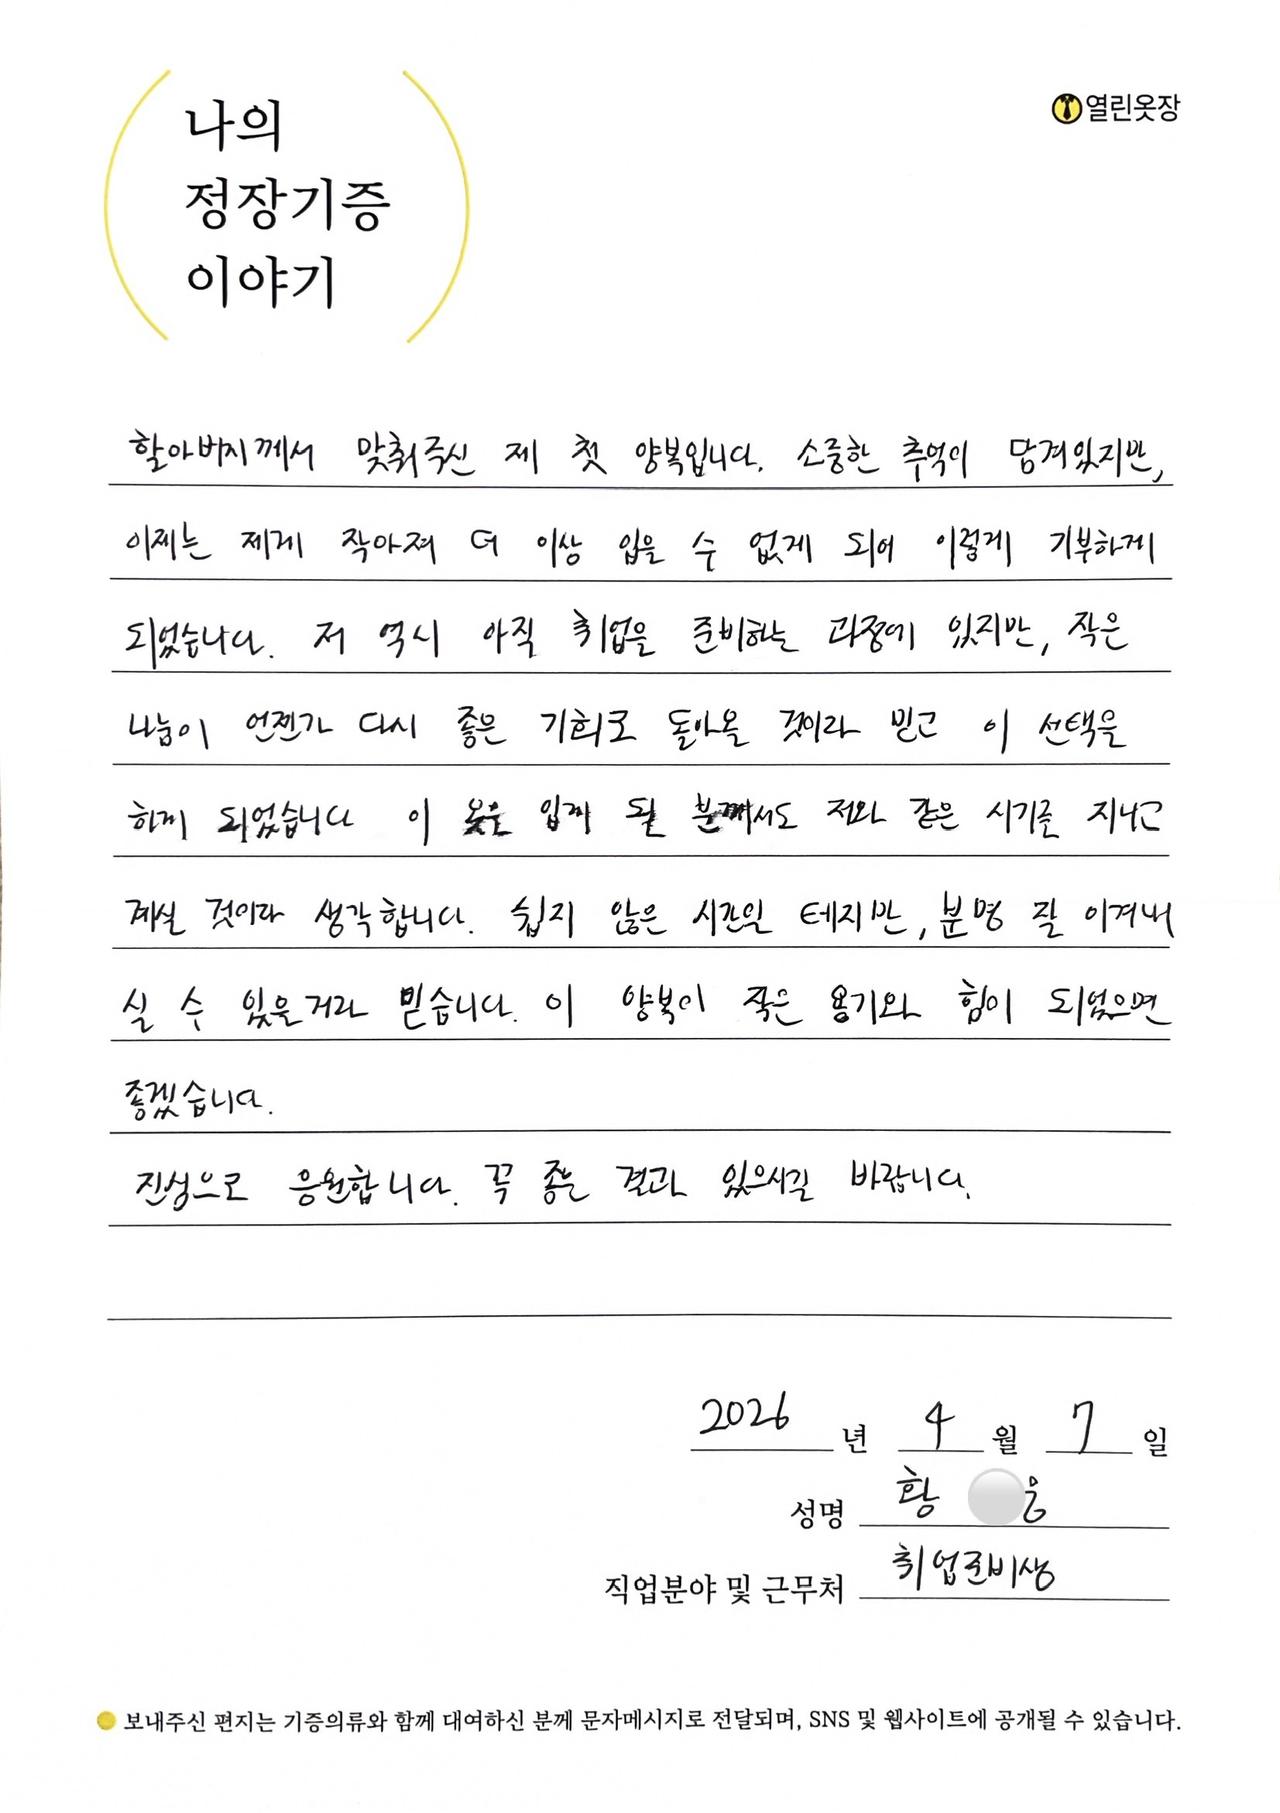 나의
정장기증
이야기
열린옷장
할아버지께서 맞춰주신 제 첫 양복입니다. 소중한 추억이 담겨있지만,
이제는 제게 작아져 더 이상 입을 수 없게 되어 이렇게 기부하게
되었습니다. 저 역시 아직 취업을 준비하는 과정에 있지만, 작은
나눔이 언젠가 다시 좋은 기회로 돌아올 것이라 믿고 이 선택을
하게 되었습니다 이 옷을 입게 될 분께서도 저와 같은 시기를 지나고
계실 것이라 생각합니다. 쉽지 않은 시간일 테지만, 분명 잘 이겨내
실 수 있을거라 믿습니다. 이 양복이 작은 용기와 힘이 되었으면
좋겠습니다.
진심으로 응원합니다. 꼭 좋은 결과 있으시길 바랍니다.
2026 년 4 월 7 일
성명 황 웅
직업분야 및 근무처 취업준비생
보내주신 편지는 기증의류와 함께 대여하신 분께 문자메시지로 전달되며, SNS 및 웹사이트에 공개될 수 있습니다.